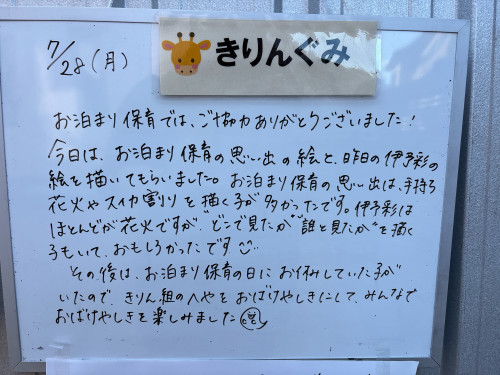 きりんぐみ
7/28(月)
お泊まり保育では、ご協力ありがとうございました!
今日は、お泊まり保育の思い出の絵と、昨日の伊予彩の
絵を描いてもらいました。お泊まり保育の思い出は、手持ち
花火やスイカ割りを描く子が多かったです。伊予彩は
ほとんどが花火ですが、"どこで見たか" "誰と見たか"を描く
子もいて、おもしろかったです
その後は、お泊まり保育の日にお休みしていた子が
いたので、きりん組のへやをおばけやしきにして、みんなで
おばけやしきを楽しみました